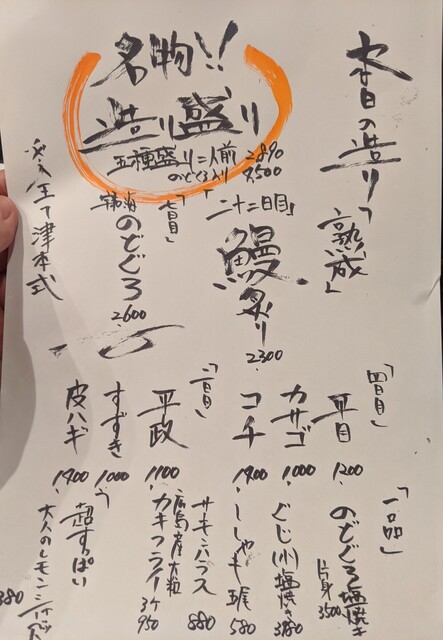 本日の造り「熟成」
名物!!
造り盛り
五種盛り二人前 2,890
のどぐろ入り 4,500
「二十二日目」
鰻炙り
2300
「七日目」
のどぐろ
2600
全て津本式
「四日目」
平目
1200
カサゴ
1000
コチ
1400
「二日目」
平政
1100
すずき
1000
皮ハギ
1400
「一品」
のどぐろ塩焼き
片身 3500
ぐじ(小)塩焼き 3480
ししゃも 五尾 580
サーモンハラス 880
広島産大粒
カキフライ 3ケ 950
超すっぱい
大人のレモンシャーベット
380